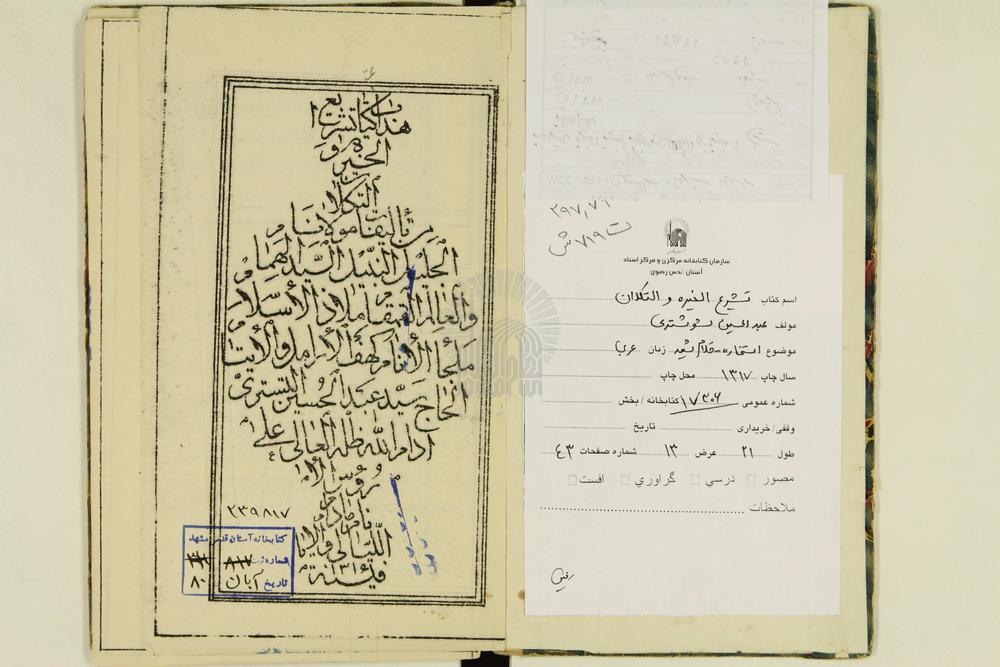 هذا كتاب تشريع
الخيرة و
التكلان
من تأليفات مولانا
الجليل النبيل السيد الهمام
والعالم القمقام ملاذ الأسلام
ملجأ الأنام كهف الأرامل والأيتام
الحاج سيد عبد الحسين التستري
ادام الله ظله العالي على
رؤس الأنام
مادام
الليالي والأيام
في سنة ١٣١٧
٢٣٩٨١٧
كتابخانه آستان قدس مشهد
شماره ثبت ٨١٧
تاريخ آبان ٨٠
٢٩٧,٧٦
ت ٧١٩ ش
سازمان کتابخانه مرکزی و مرکز اسناد
آستان قدس رضوی
اسم کتاب تشریع الخیره و التکلان
مولف عبدالحسین شوشتری
موضوع استخاره - کلام شیعه زبان عربی
سال چاپ ۱۳۱۷ محل چاپ
شماره عمومی ۱۷۳۰۶ کتابخانه / بخش
وقفی / خریداری تاریخ
طول ۲۱ عرض ۱۳ شماره صفحات ۴۳
مصور درسی گراوری افست
ملاحظات